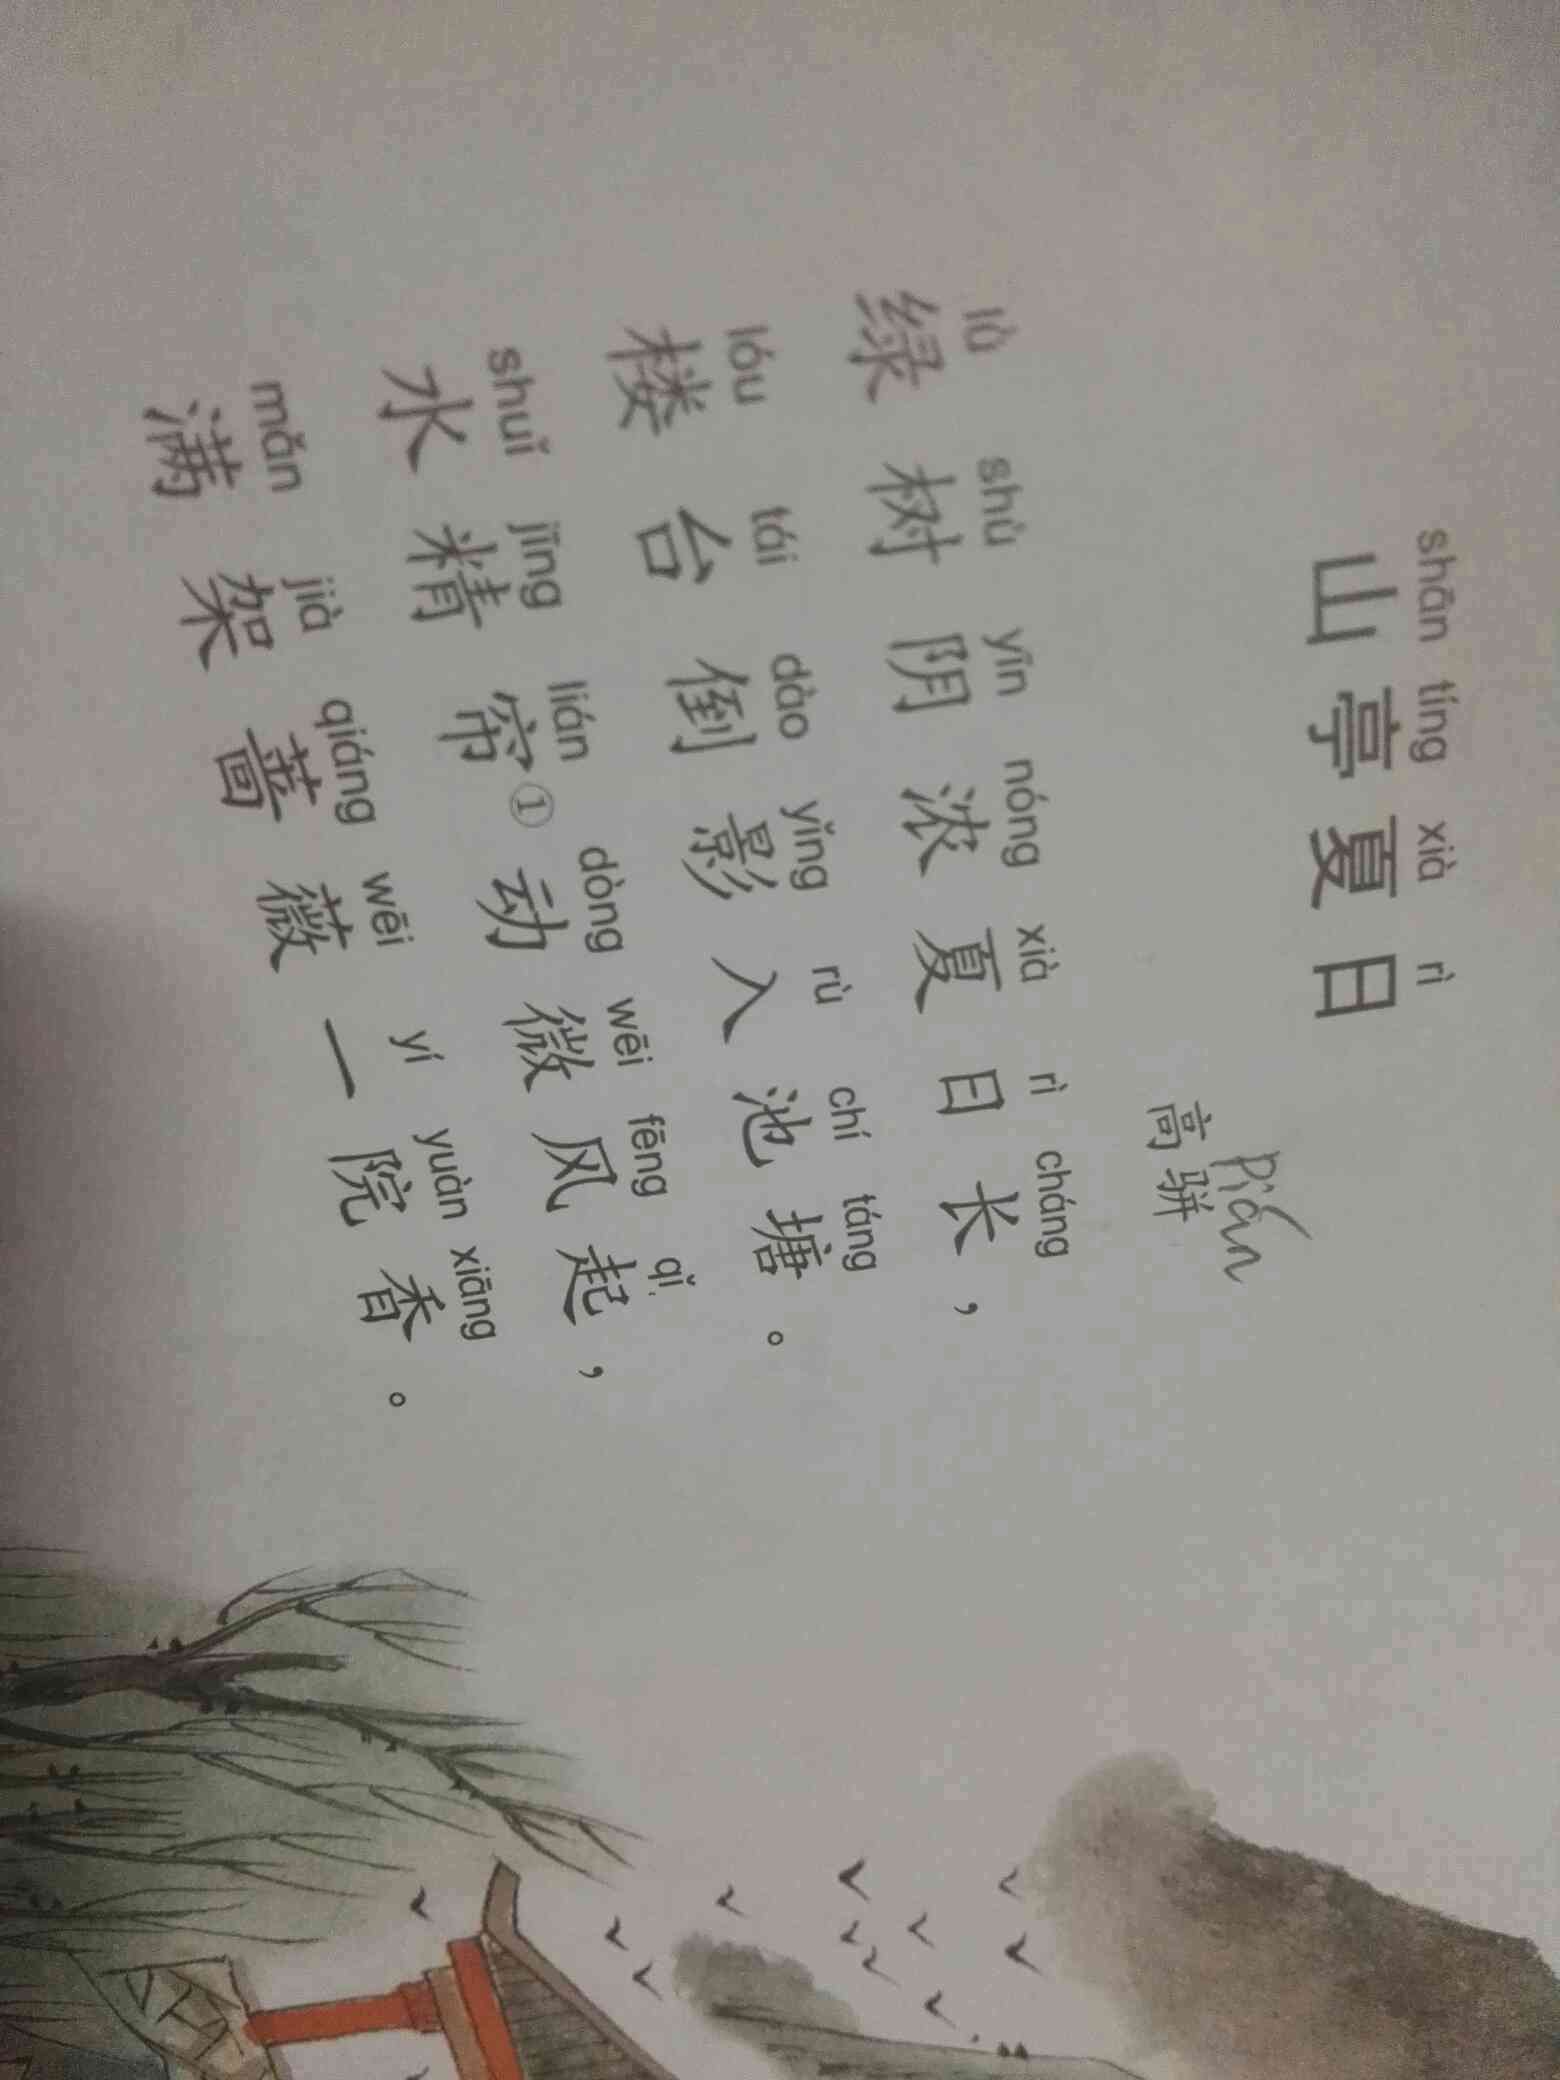 shān tíng xià rì
山亭夏日
pián
高骈
lǜ shù yīn nóng xià rì cháng
绿树阴浓夏日长，
lóu tái dào yǐng rù chí táng
楼台倒影入池塘。
shuǐ jīng lián dòng wēi fēng qǐ
水精帘①动微风起，
mǎn jià qiáng wēi yí yuàn xiāng
满架蔷薇一院香。